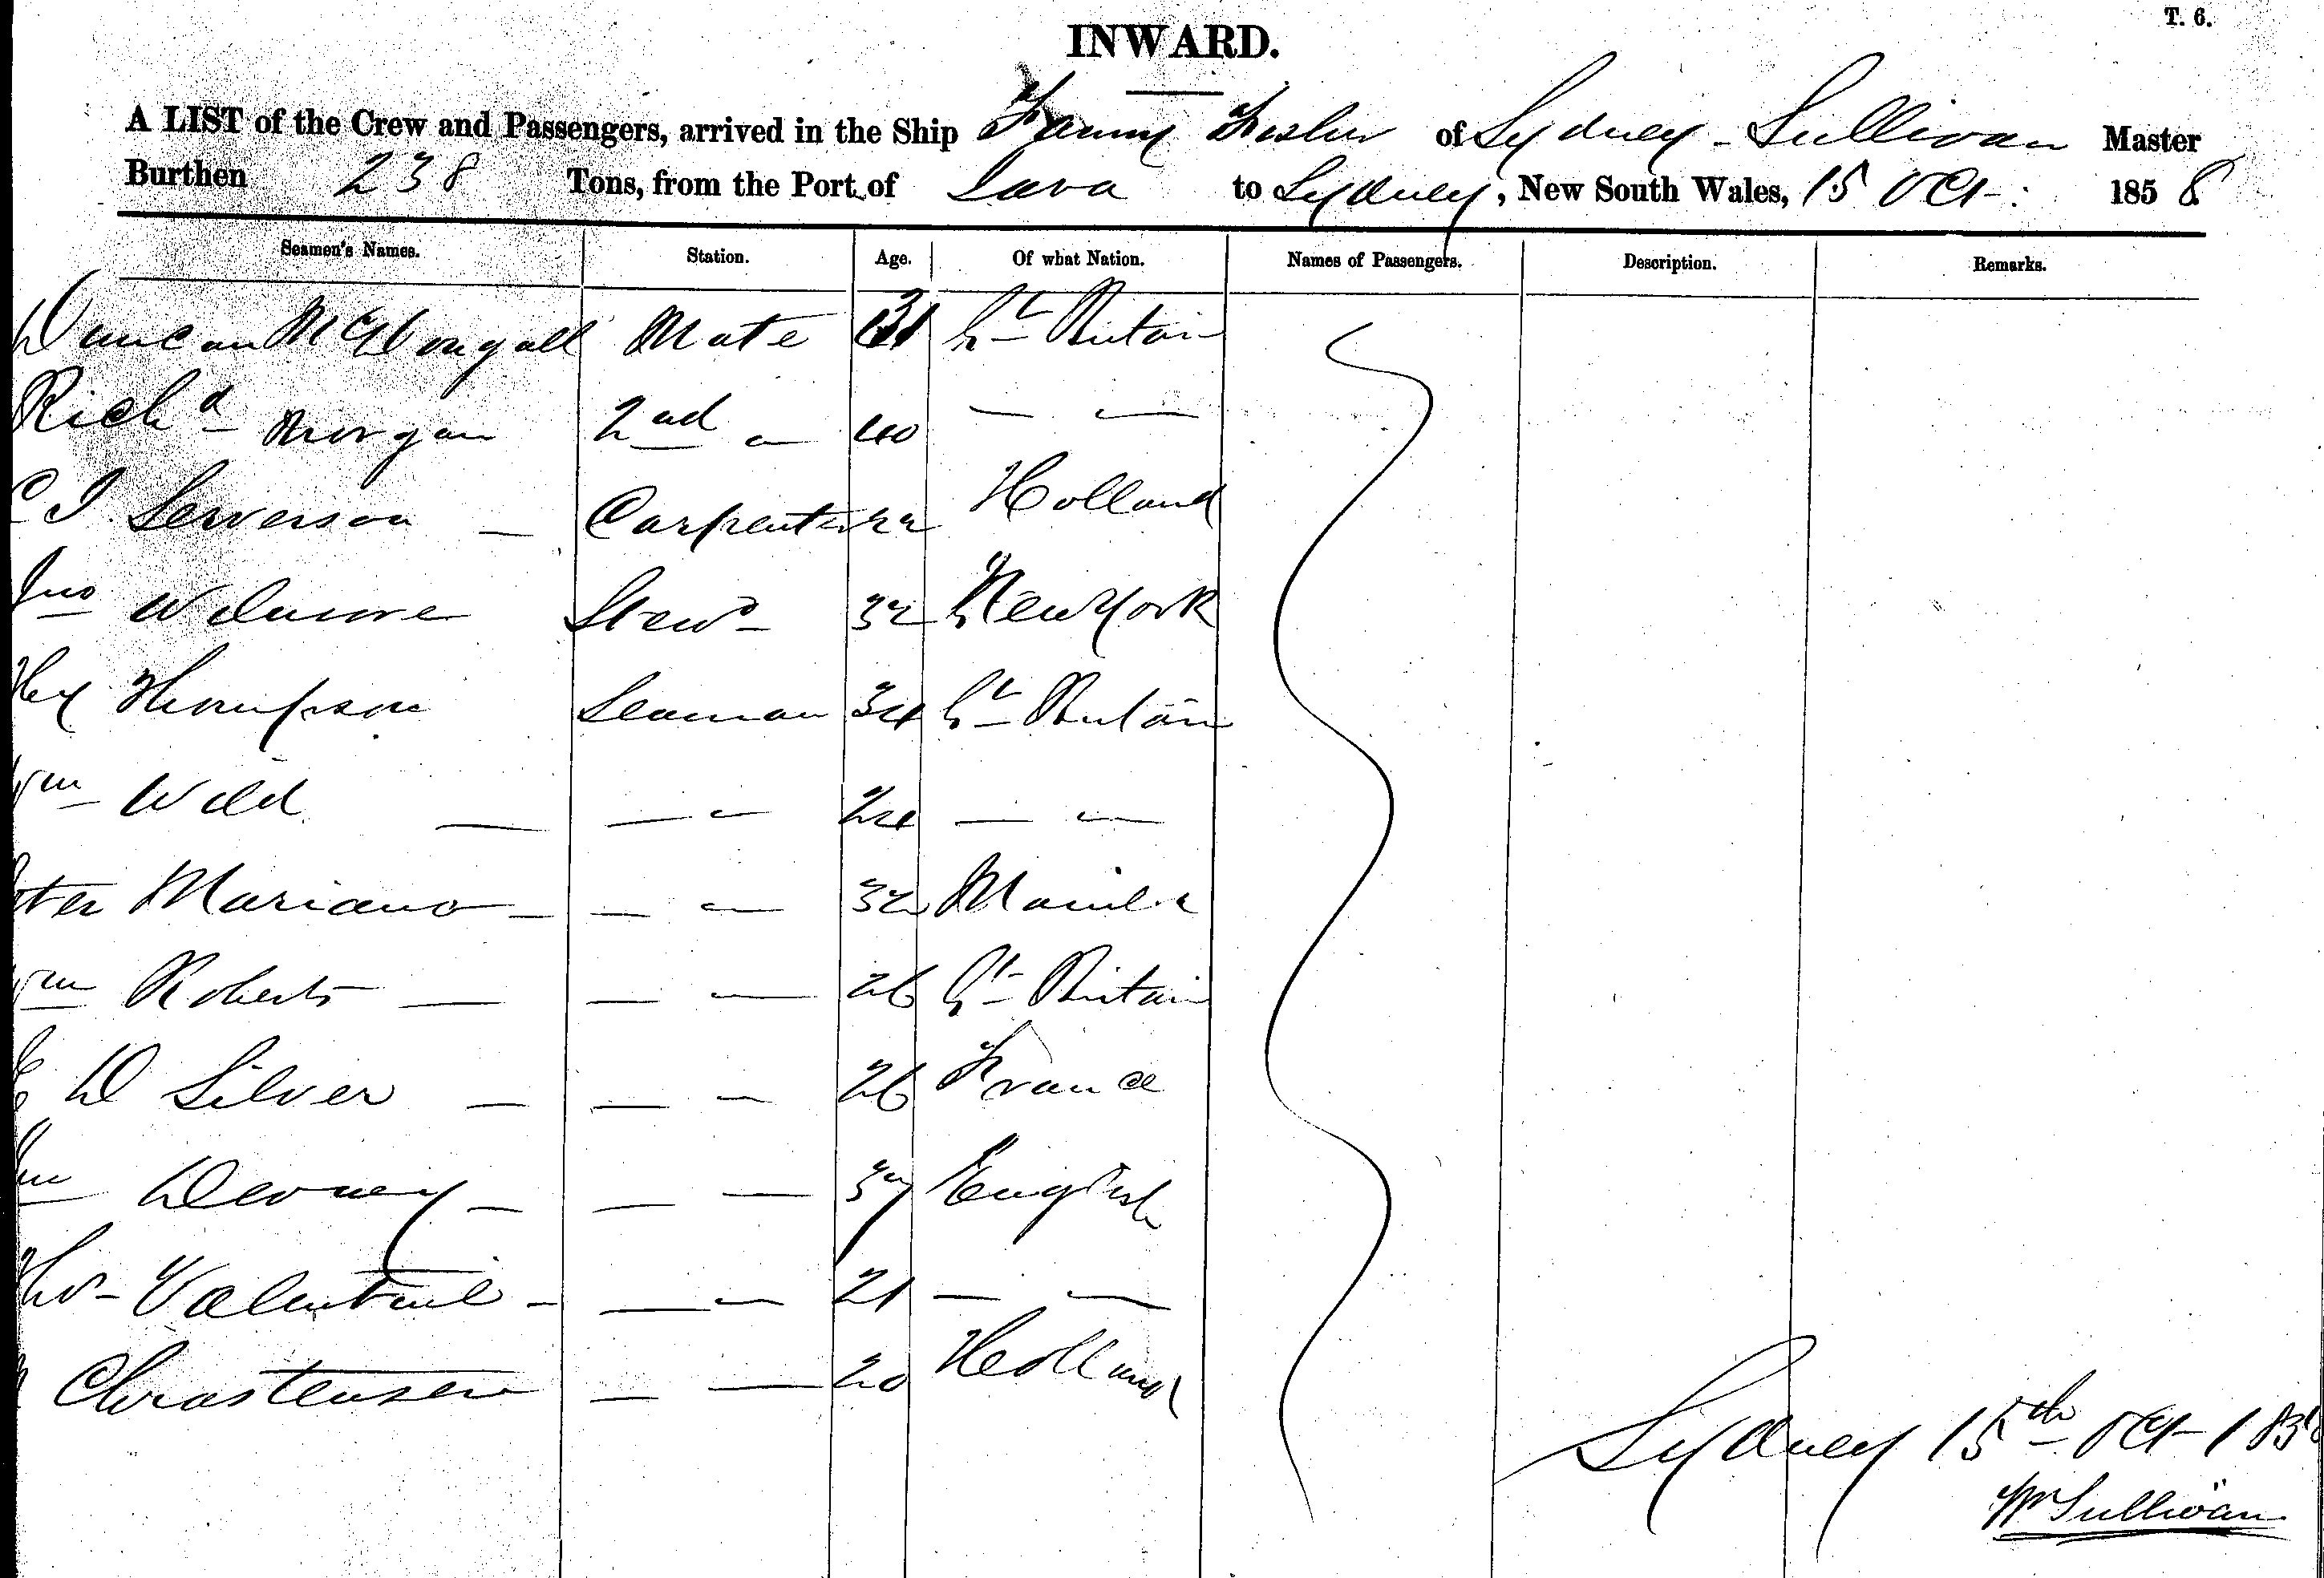 T. 6.
INWARD.
A LIST of the Crew and Passengers, arrived in the Ship Fanny Fisher of Sydney - Sullivan Master
Burthen 238 Tons, from the Port of Java to Sydney, New South Wales, 15 Oct: 1858
Seamen's Names. Station. Age. Of what Nation. Names of Passengers. Description. Remarks.
Duncan McDougall Mate 31 Gt Britain
Richd Morgan 2nd — 40 — —
C J Serverson — Carpenter 22 Holland
Jno Stewd 32 New York
Hy Thompson Seaman 34 Gt Britain
Wm Wild — — — 24 — —
Peter Mariano — — — 32 Manila
Wm Roberts — — — 26 Gt Britain
E D Silver — — — 26 France
Devney — — — 37 English
Thos Valentine — — — 21 — —
Christensen — — 20 Holland
Sydney 15th Oct 1858
Wm Sullivan